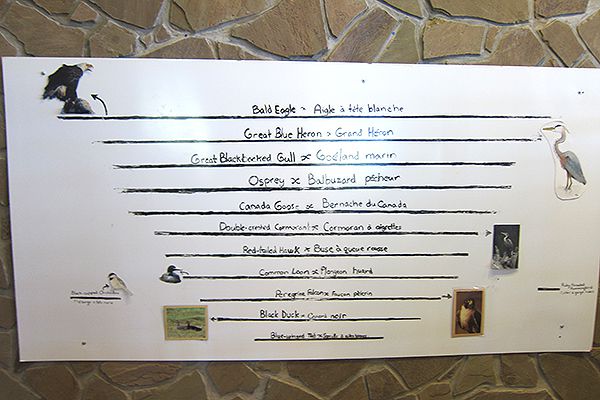 Bald Eagle ~ Aigle à tête blanche
Great Blue Heron ~ Grand Héron
Great Blackbacked Gull ~ Goéland marin
Osprey ~ Balbuzard pêcheur
Canada Goose ~ Bernache du Canada
Double-crested Cormorant ~ Cormoran à aigrettes
Red-tailed Hawk ~ Buse à queue rousse
Common Loon ~ Plongeon huard
Peregrine Falcon ~ Faucon pèlerin
Black-capped Chickadee
Black Duck ~ Canard noir
Blue-winged Teal ~